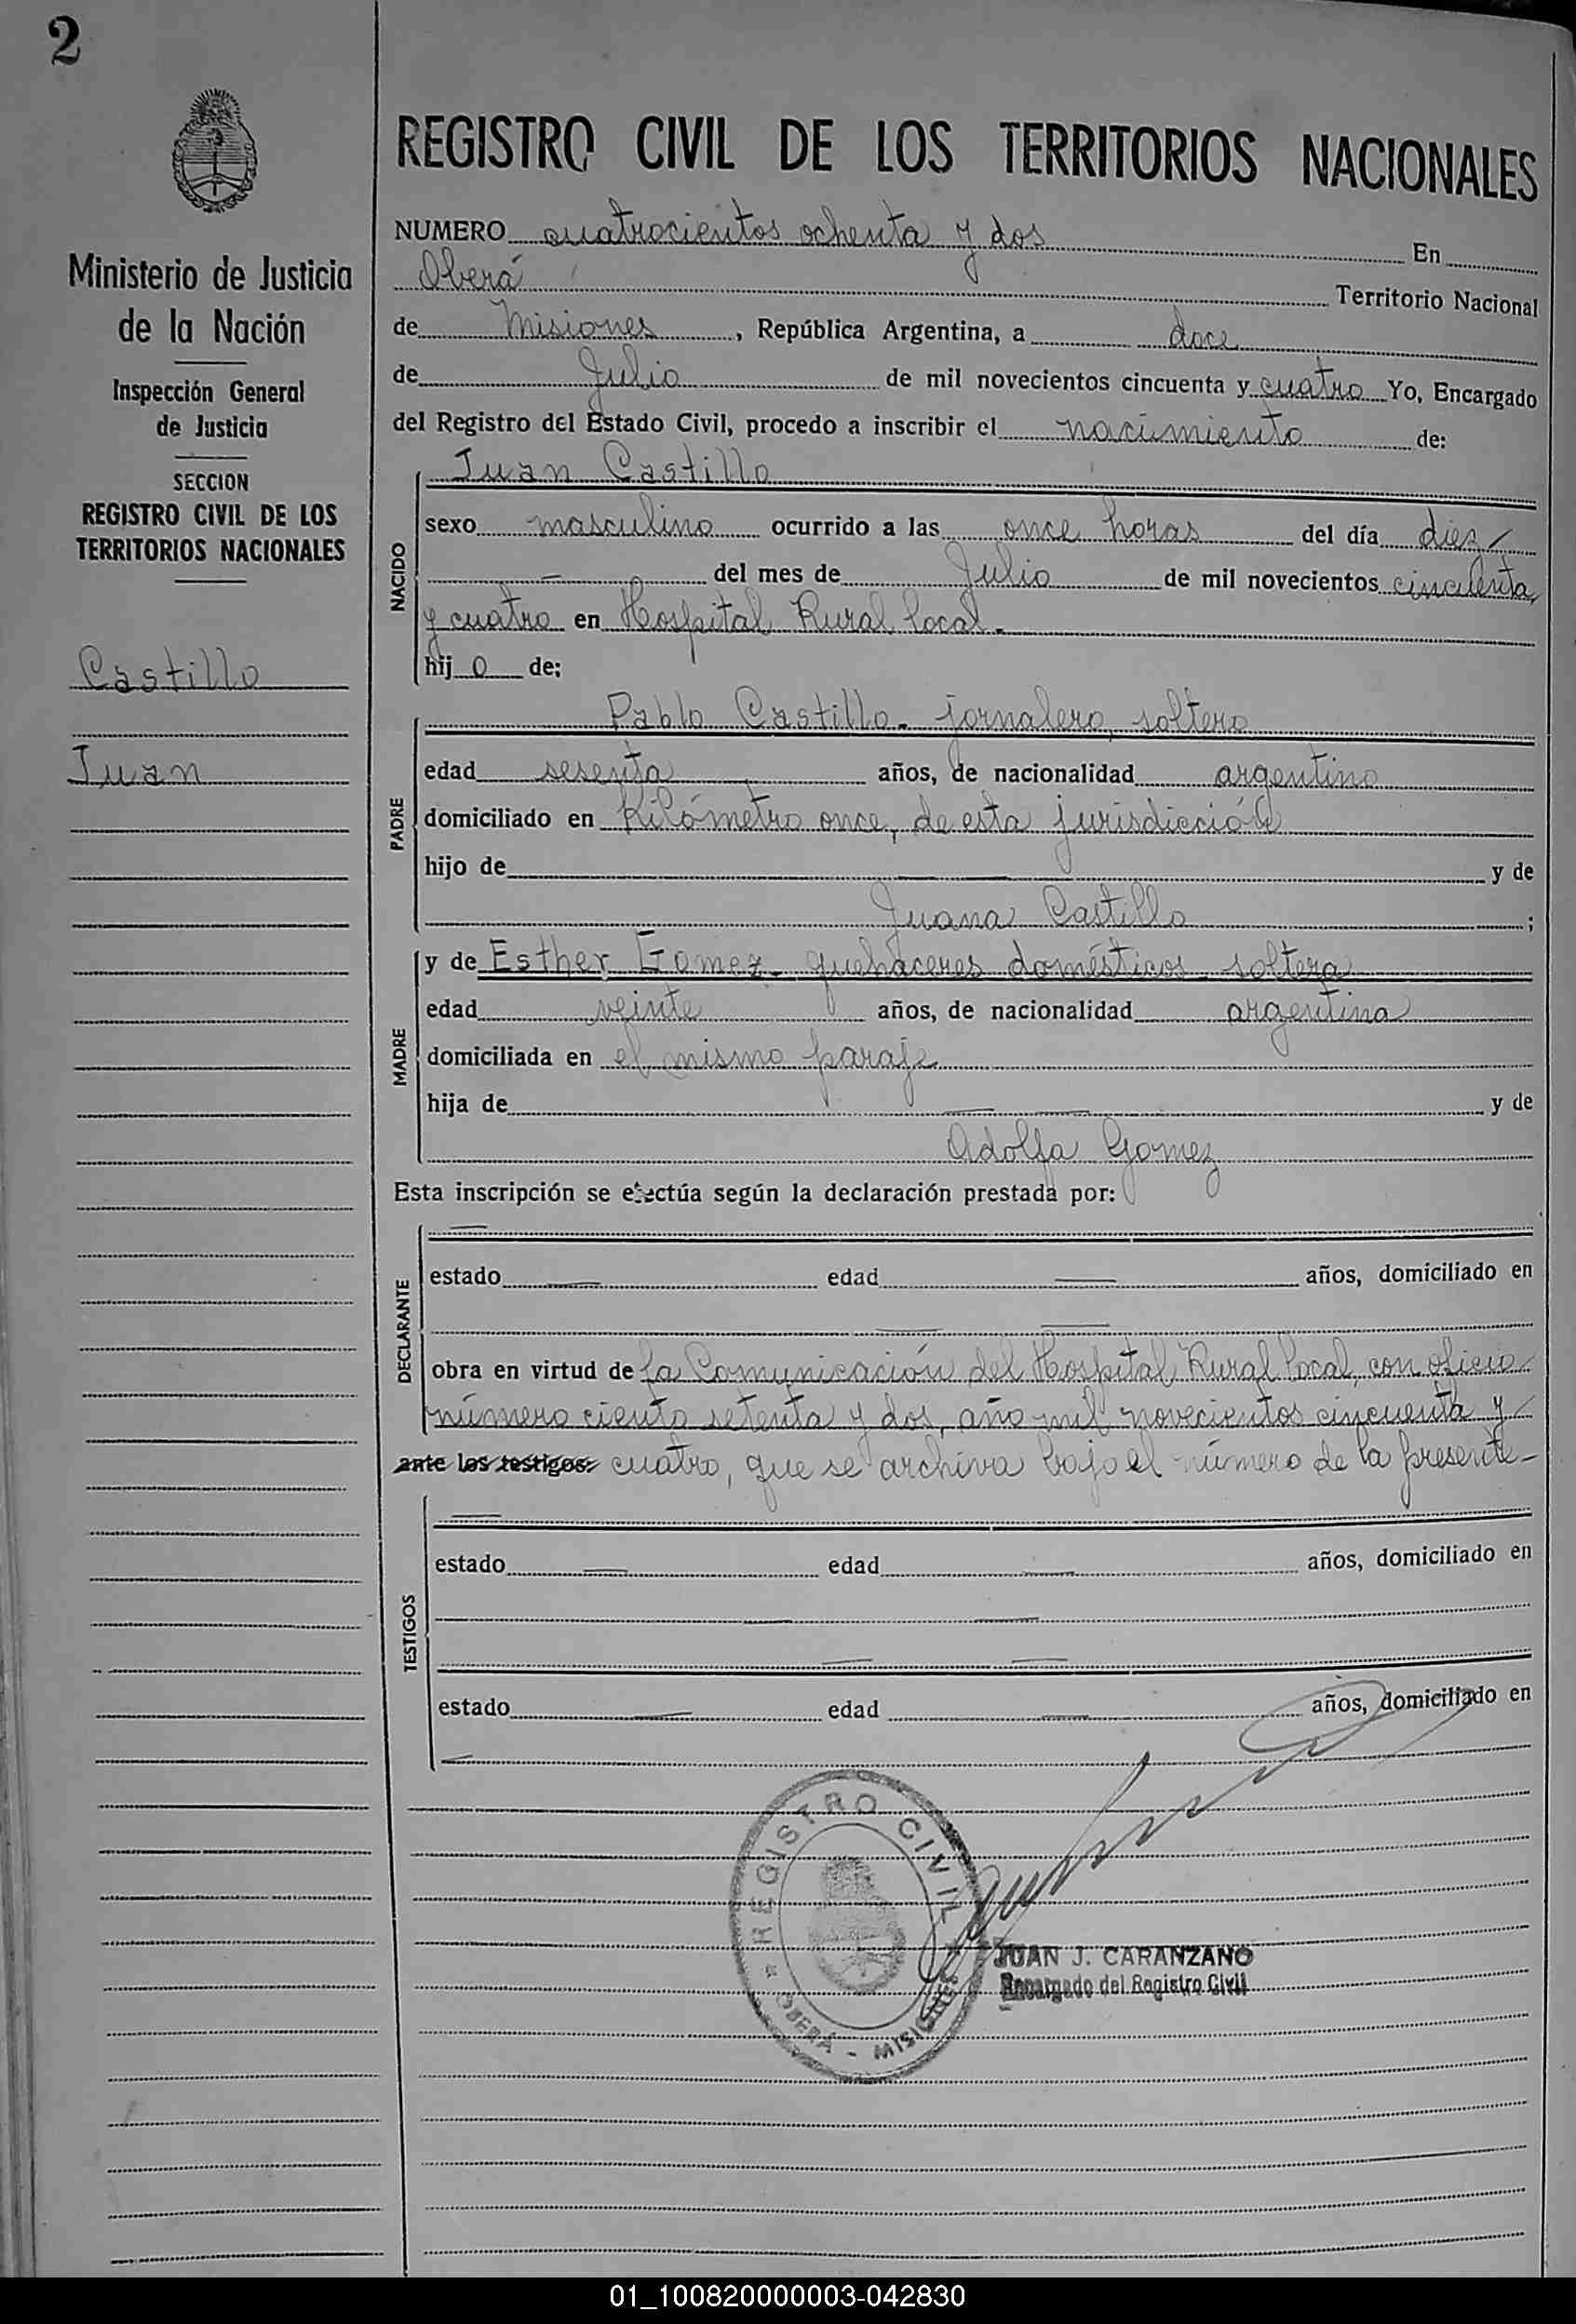 2
Ministerio de Justicia
de la Nación
Inspección General
de Justicia
SECCION
REGISTRO CIVIL DE LOS
TERRITORIOS NACIONALES
Castillo
Juan
REGISTRO CIVIL DE LOS TERRITORIOS NACIONALES
NUMERO cuatrocientos ochenta y dos En
Oberá Territorio Nacional
de Misiones, República Argentina, a doce
de Julio de mil novecientos cincuenta y cuatro Yo, Encargado
del Registro del Estado Civil, procedo a inscribir el nacimiento de:
NACIDO
Juan Castillo
sexo masculino ocurrido a las once horas del día diez
— del mes de Julio de mil novecientos cincuenta
y cuatro en Hospital Rural local.
hij o de;
PADRE
Pablo Castillo - jornalero, soltero
edad sesenta años, de nacionalidad argentino
domiciliado en Kilómetro once, de esta jurisdicción
hijo de — y de
Juana Castillo ;
MADRE
y de Esther Gomez - quehaceres domésticos - soltera
edad veinte años, de nacionalidad argentina
domiciliada en el mismo paraje
hija de — — y de
Adolfa Gomez
Esta inscripción se efectúa según la declaración prestada por:
DECLARANTE
—
estado — edad — años, domiciliado en
— —
obra en virtud de la Comunicación del Hospital Rural local, con oficio
número ciento setenta y dos, año mil novecientos cincuenta y
ante los testigos: cuatro, que se archiva bajo el número de la presente -
TESTIGOS
—
estado — edad — años, domiciliado en
— —
— —
estado — edad — años, domiciliado en
—
REGISTRO CIVIL
OBERÁ - MISIONES
JUAN J. CARANZANO
Encargado del Registro Civil
01_100820000003-042830